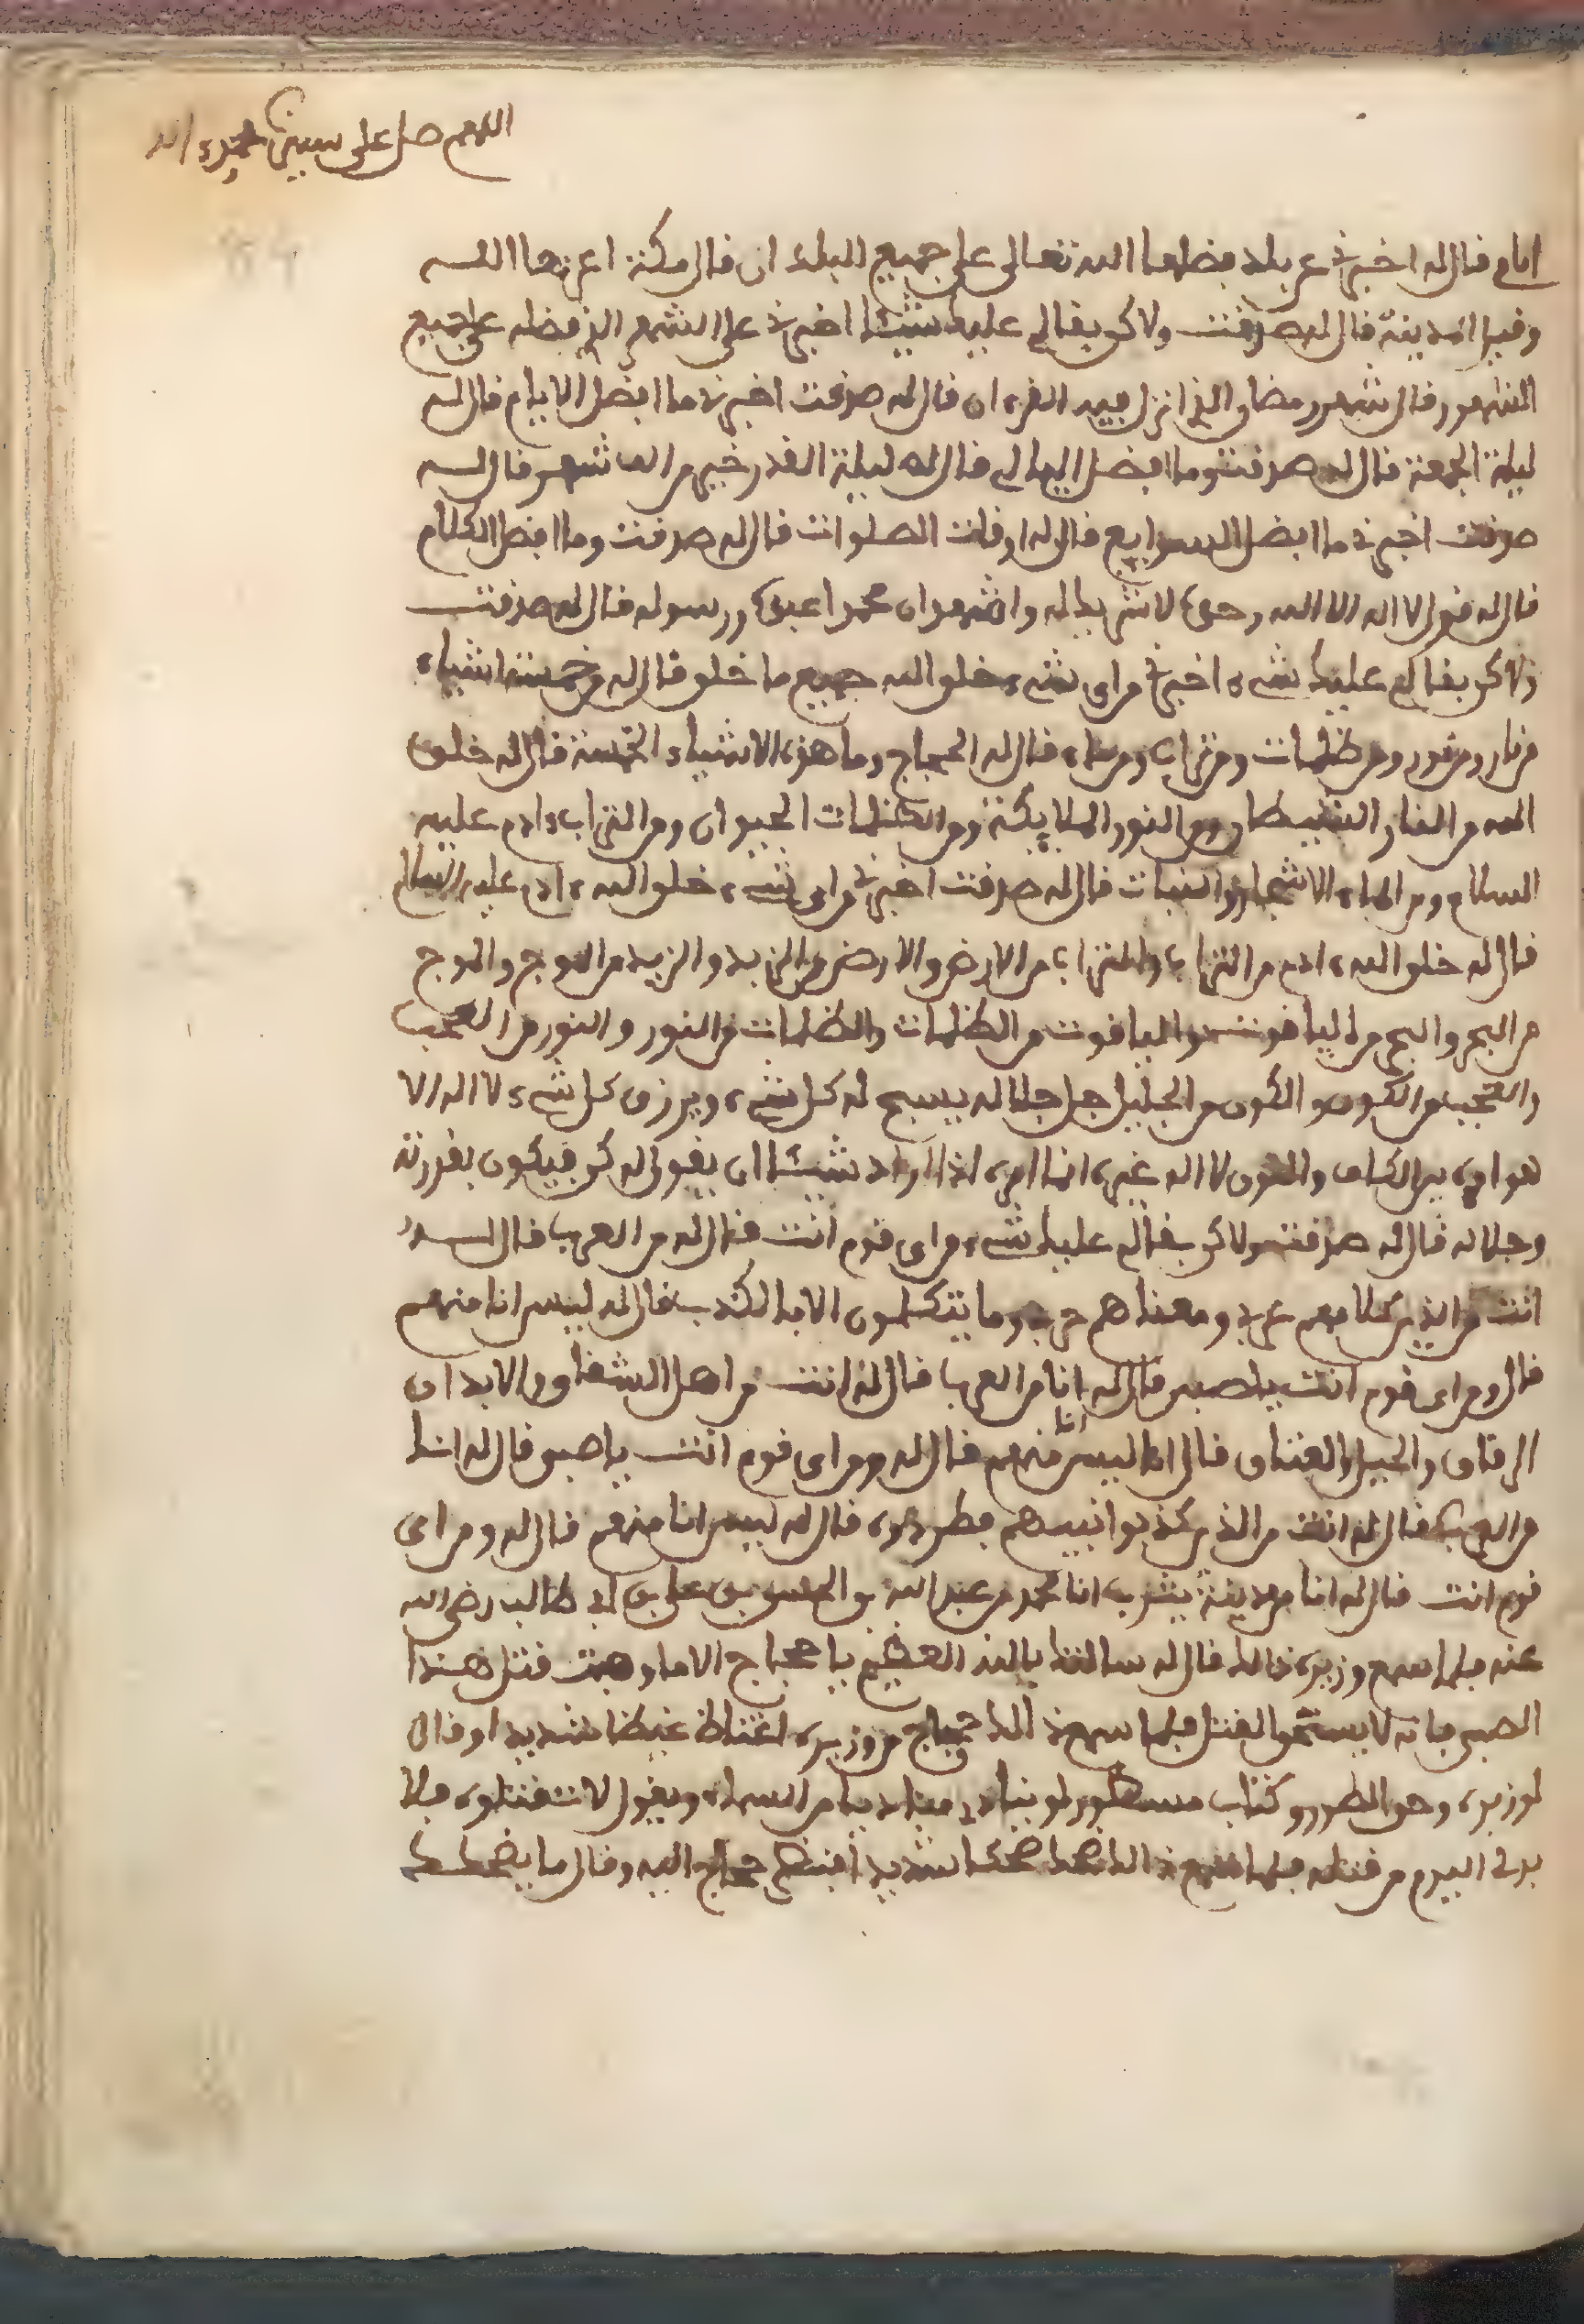 اللهم صل على سيدنا محمد
امام فال له اخبرني عن بلد فضلها الله تعالى على جميع البلدان فال مكة اعزها الله
وفيل المدينة فال له صدفت ولاكن بفالي عليك شيئا اخبرني على الشهر الذي فضله على جميع
الشهور فال شهر رمضان الذي انزل فيه الفرءان فال له صدفت اخبرني ما افضل الايام فال له
ليلة الجمعة فال له صدفت وما افضل اليالي فال له ليلة الفدر خير من الف شهر فال له
صدفت اخبرني ما افضل السوايع فال له اوفات الصلوات فال له صدفت وما افضل الكلام
فال له فول لا اله الا الله وحده لا شريك له واشهد ان محمدا عبده ورسوله فال له صدفت
ولاكن بفالي عليك شيء اخبرني من اي شيء خلق الله جميع ما خلق فال له من خمسة اشياء
من نار ومن نور ومن ظلمات ومن تراب ومن ماء فال له الحجاج وما هذه الاشياء الخمسة فال له خلق
الله من النار الشيطان ومن النور الملايكة ومن الظلمات الحيوان ومن التراب ءادم عليه
السلام ومن الماء الاشجار والنبات فال له صدفت اخبرني من اي شيء خلق الله ءادم عليه السلام
فال له خلق الله ءادم من التراب والتراب من الارض والارض من الزبد والزبد من الموج والموج
من البحر والبحر من اليافوت واليافوت من الظلمات والظلمات من النور والنور من الحجب
والحجب من الكون والكون من الجليل جل جلاله يسبح له كل شيء ويرزق كل شيء لا اله الا
هو امره بين الكاف والنون لا اله غيره انما امره اذا اراد شيئا ان يفول له كن فيكون بفدرته
وجلاله فال له صدفت ولاكن بفالي عليك شيء من اي فوم انت فال له من العرب فال له
انت من الذين كلامهم عرب ومعناهم حرب وما يتكلمون الا بالكذب فال له ليس انا منهم
فال ومن اي فوم انت يا صبي فال له انا من العرب فال له انت من اهل الشفاق والابدان
الرفاق والخيل العتاق فال له ليس انا منهم فال له ومن اي فوم انت يا صبي فال له انا
من العرب فال له انت من الذين كذبوا نبيهم فطردوه فال له ليس انا منهم فال له ومن اي
فوم انت فال له انا من مدينة يثرب انا محمد بن عبد الله بن الحسن بن علي بن ابي طالب رضي الله
عنه فلما سمع وزيره ذالك فال له سالتك بالله العظيم يا حجاج الا ما وهبت فتل هذا
الصبي فانه لا يستحق الفتل فلما سمع ذالك حجاج من وزيره اغتاظ غيظا شديدا وفال
لوزيره وحق الطور وكتاب مسطور لو ينادي مناديا من السماء ويفول لا تفتلوه فلا
بد لي اليوم من فتله فلما سمع ذالك ضحك ضحكا شديدا فنظر حجاج اليه وفال ما يضحكك